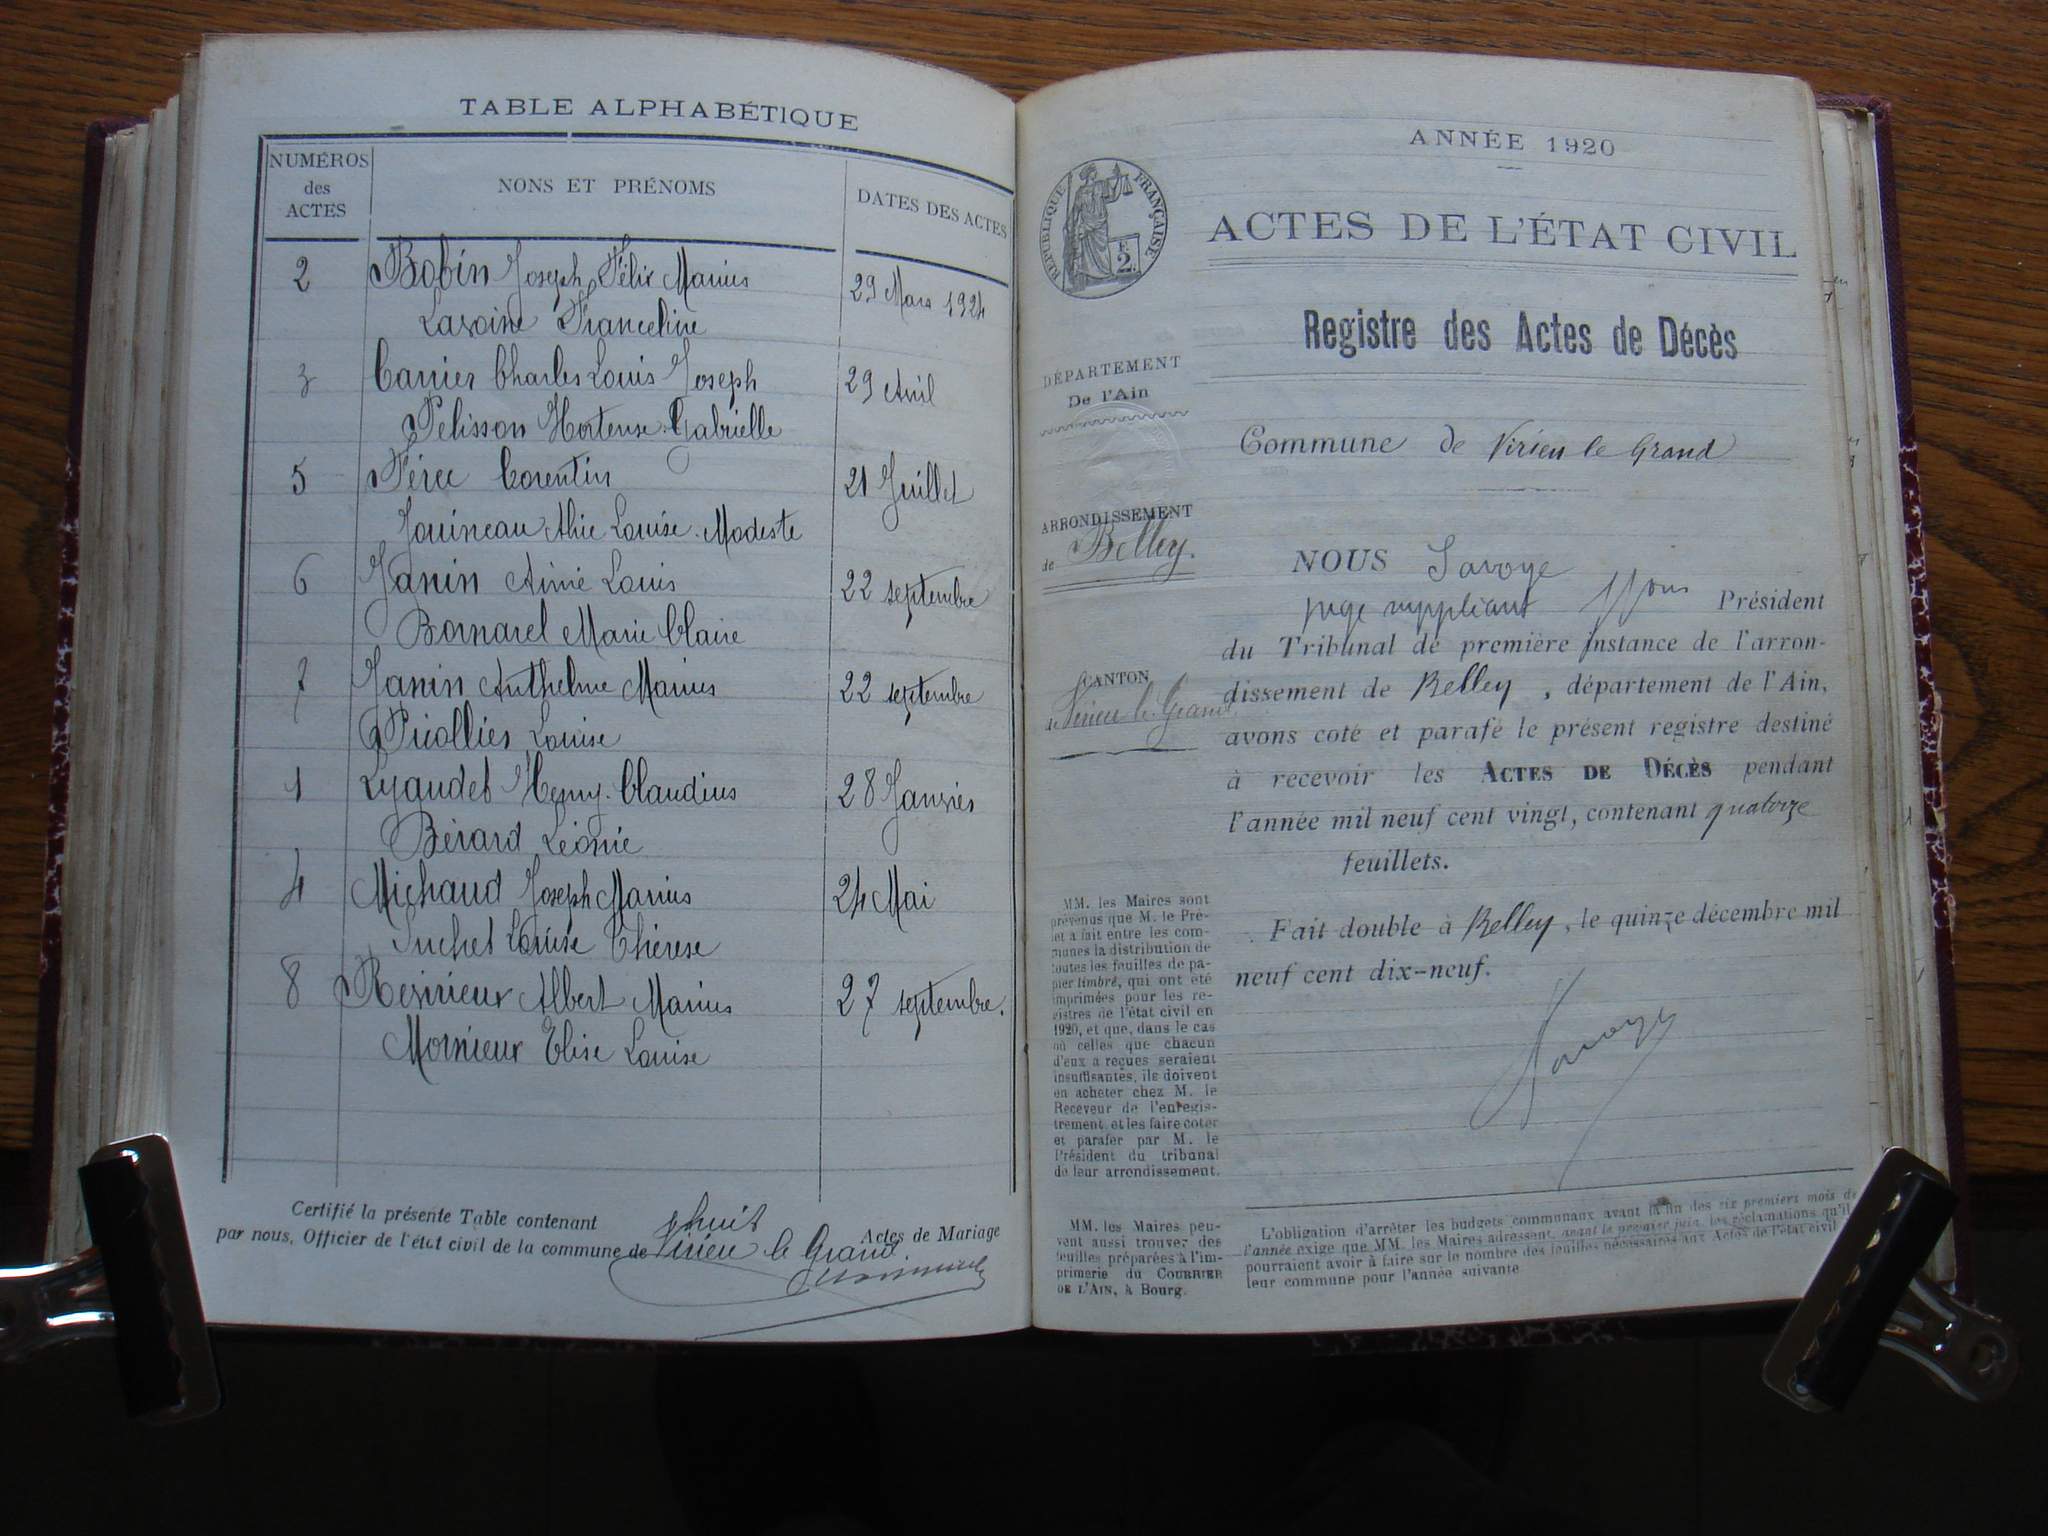 TABLE ALPHABÉTIQUE
NUMÉROS des ACTES
NONS ET PRÉNOMS
DATES DES ACTES
2 Bobin Joseph Félix Marius 29 Mars 1924
Lavoine Franceline
3 Carrier Charles Louis Joseph 29 Avril
Pelisson Hortense Gabrielle
5 Férec Corentin 21 Juillet
Jouineau Louise Modeste
6 Janin Aimé Louis 22 septembre
Bornarel Marie Claire
7 Janin Anthelme Marius 22 septembre
Picollier Louise
1 Lyaudet Henry Claudius 28 Janvier
Bérard Léonie
4 Michaud Joseph Marius 24 Mai
Suchet Louise Thérèse
8 Revirieux Albert Marius 27 septembre.
Mornieux Elise Louise
Certifié la présente Table contenant huit Actes de Mariage
par nous, Officier de l'état civil de la commune de Virieu le Grand.
ANNÉE 1920
RÉPUBLIQUE FRANÇAISE
2
ACTES DE L'ÉTAT CIVIL
Registre des Actes de Décès
DÉPARTEMENT
De l'Ain
Commune de Virieu le Grand
ARRONDISSEMENT
de Belley.
CANTON
de Virieu le Grand
NOUS Savoye
juge suppléant Président
du Tribunal de première instance de l'arron-
dissement de Belley, département de l'Ain,
avons coté et parafé le présent registre destiné
à recevoir les ACTES DE DÉCÈS pendant
l'année mil neuf cent vingt, contenant quatorze
feuillets.
Fait double à Belley, le quinze décembre mil
neuf cent dix-neuf.
Savoye
MM. les Maires sont
prévenus que M. le Pré-
et a fait entre les com-
munes la distribution de
toutes les feuilles de pa-
pier timbré, qui ont été
imprimées pour les re-
gistres de l'état civil en
1920, et que, dans le cas
où celles que chacun
d'eux a reçues seraient
insuffisantes, ils doivent
en acheter chez M. le
Receveur de l'enregis-
trement, et les faire coter
et parafer par M. le
Président du tribunal
de leur arrondissement.
MM. les Maires peu-
vent aussi trouver des
feuilles préparées à l'im-
primerie du COURRIER
DE L'AIN, à Bourg.
L'obligation d'arrêter les budgets communaux avant la fin des six premiers mois de
l'année exige que MM. les Maires adressent, avant le premier juin, les réclamations qu'il
pourraient avoir à faire sur le nombre des feuilles nécessaires aux Actes de l'état civil
leur commune pour l'année suivante